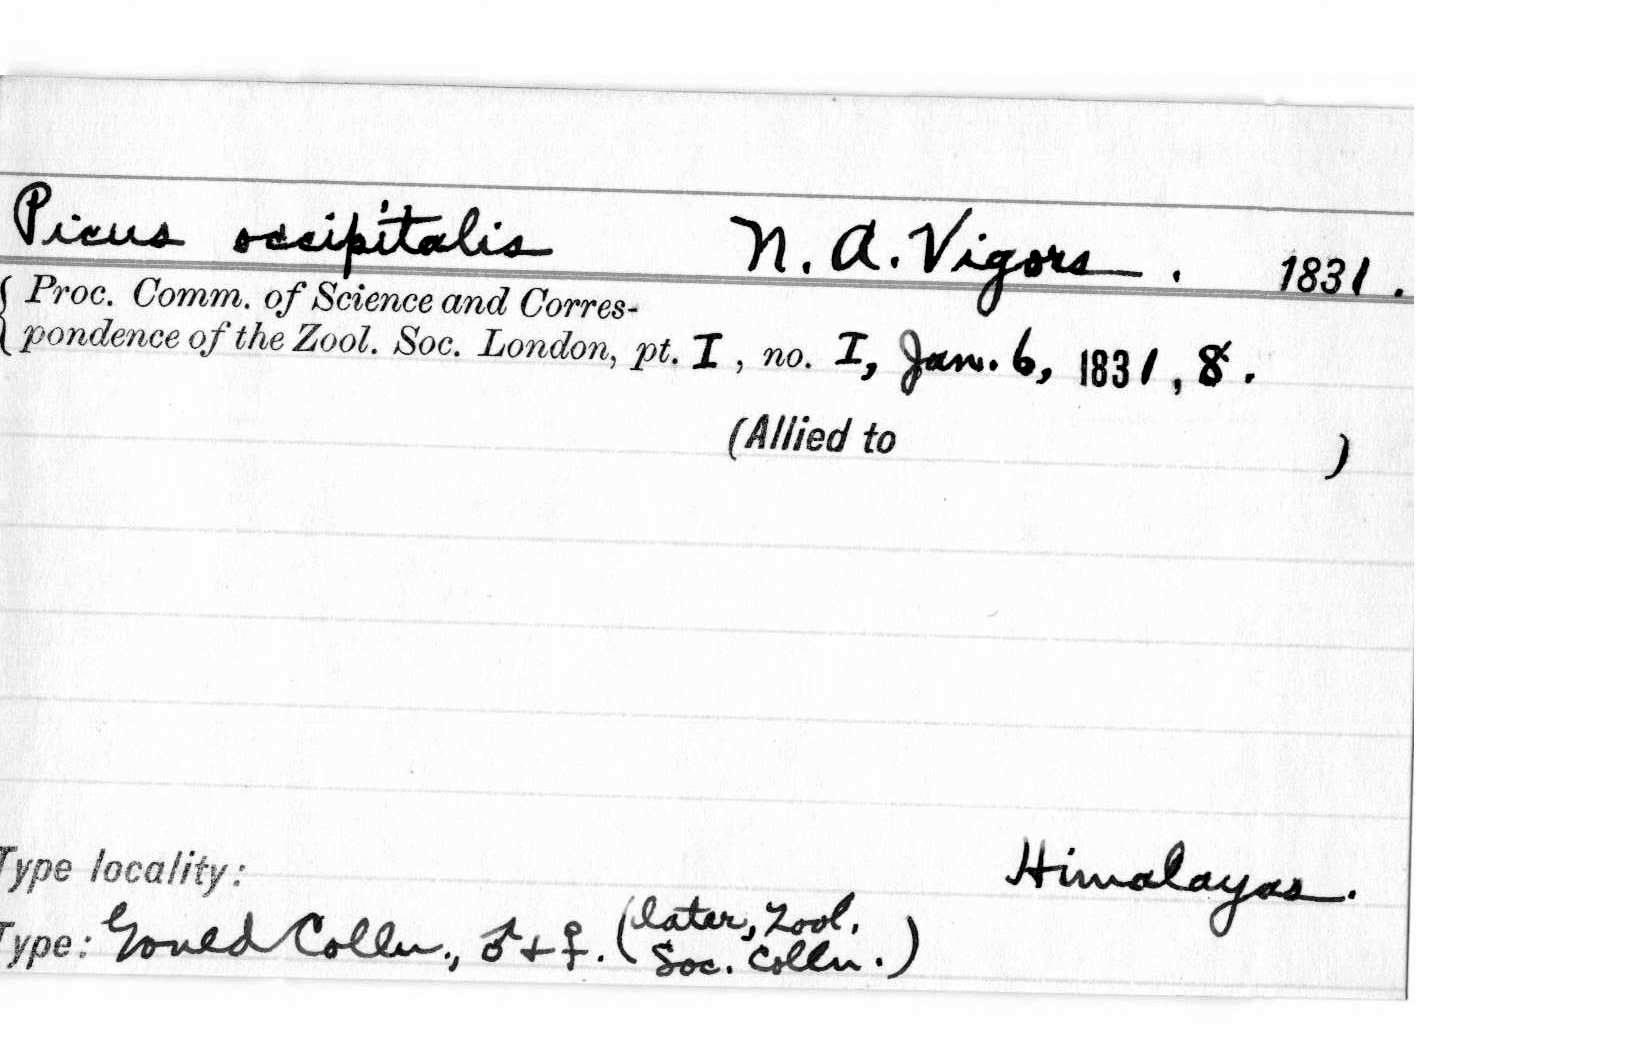 Picus occipitalis N. A. Vigors. 1831.
{ Proc. Comm. of Science and Corres-
pondence of the Zool. Soc. London, pt. I, no. I, Jan. 6, 1831, 8.
(Allied to )
Type locality: Himalayas.
Type: Gould Colln., ♂ + ♀. (later, Zool.
Soc. Colln.)